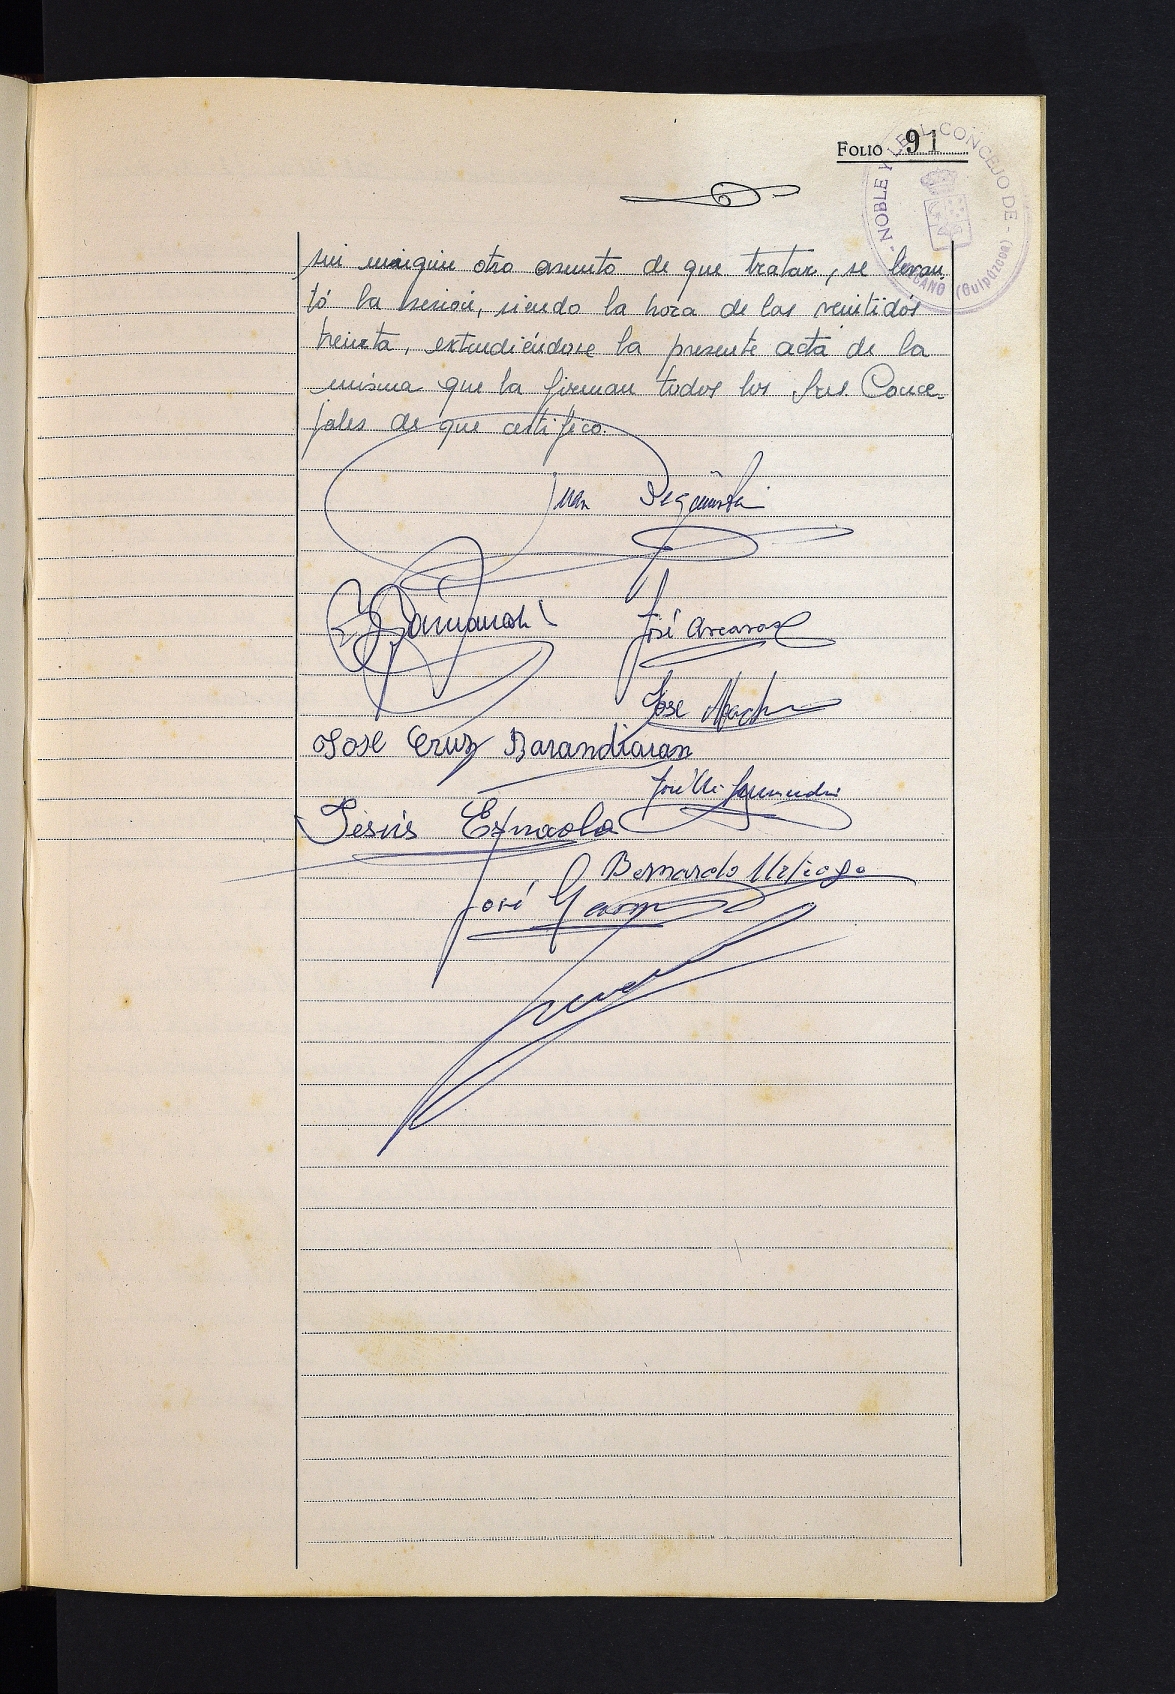 FOLIO 91
NOBLE Y LEAL CONCEJO DE
(Guipúzcoa)
sin ningún otro asunto de que tratar, se levan-
tó la sesión, siendo la hora de las veintidós
treinta, extendiéndose la presente acta de la
misma que la firman todos los Sres. Conce-
jales de que certifico.
Juan
José
José
José Cruz Barandiaran
José
Jesús Eznaola
Bernardo
José